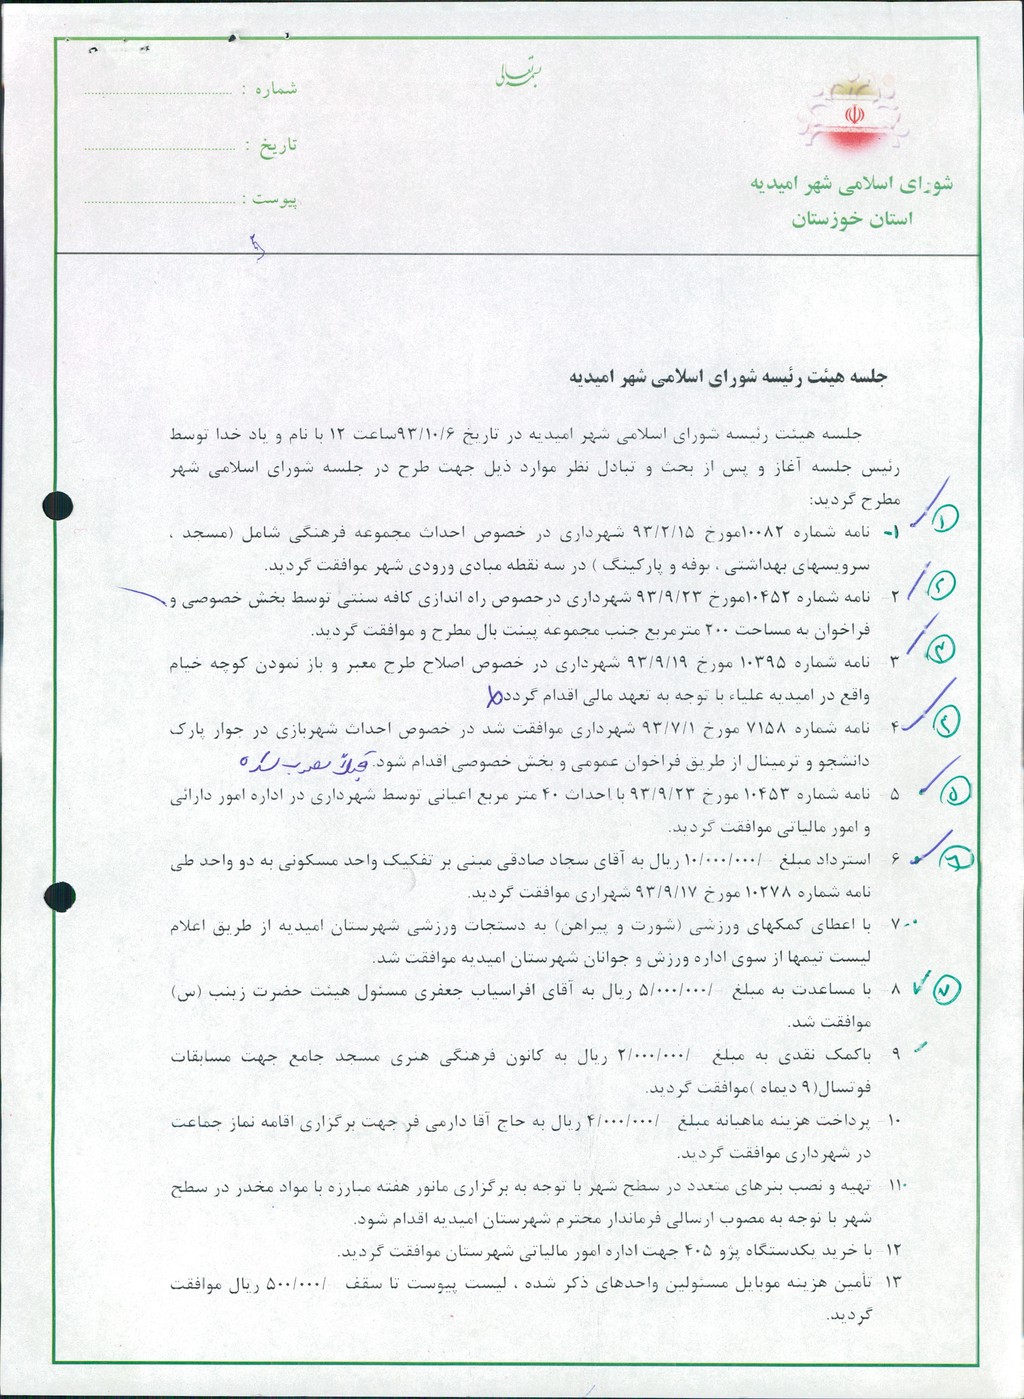 بسمه تعالی
شماره :
تاریخ :
پیوست :
شورای اسلامی شهر امیدیه
استان خوزستان
جلسه هیئت رئیسه شورای اسلامی شهر امیدیه
جلسه هیئت رئیسه شورای اسلامی شهر امیدیه در تاریخ ۹۳/۱۰/۶ساعت ۱۲ با نام و یاد خدا توسط
رئیس جلسه آغاز و پس از بحث و تبادل نظر موارد ذیل جهت طرح در جلسه شورای اسلامی شهر
مطرح گردید:
۱- نامه شماره ۱۰۰۸۲مورخ ۹۳/۲/۱۵ شهرداری در خصوص احداث مجموعه فرهنگی شامل (مسجد ، ①
سرویسهای بهداشتی ، بوفه و پارکینگ ) در سه نقطه مبادی ورودی شهر موافقت گردید.
۲- نامه شماره ۱۰۴۵۲مورخ ۹۳/۹/۲۳ شهرداری درخصوص راه اندازی کافه سنتی توسط بخش خصوصی و ②
فراخوان به مساحت ۲۰۰ مترمربع جنب مجموعه پینت بال مطرح و موافقت گردید.
۳- نامه شماره ۱۰۳۹۵ مورخ ۹۳/۹/۱۹ شهرداری در خصوص اصلاح طرح معبر و باز نمودن کوچه خیام ③
واقع در امیدیه علیاء با توجه به تعهد مالی اقدام گردد
۴- نامه شماره ۷۱۵۸ مورخ ۹۳/۷/۱ شهرداری موافقت شد در خصوص احداث شهربازی در جوار پارک ④
دانشجو و ترمینال از طریق فراخوان عمومی و بخش خصوصی اقدام شود. قبلاً مصوب شده
۵- نامه شماره ۱۰۴۵۳ مورخ ۹۳/۹/۲۳ با احداث ۴۰ متر مربع اعیانی توسط شهرداری در اداره امور دارائی ⑤
و امور مالیاتی موافقت گردید.
۶- استرداد مبلغ -/۱۰/۰۰۰/۰۰۰ ریال به آقای سجاد صادقی مبنی بر تفکیک واحد مسکونی به دو واحد طی ⑥
نامه شماره ۱۰۲۷۸ مورخ ۹۳/۹/۱۷ شهراری موافقت گردید.
۷- با اعطای کمکهای ورزشی (شورت و پیراهن) به دستجات ورزشی شهرستان امیدیه از طریق اعلام
لیست تیمها از سوی اداره ورزش و جوانان شهرستان امیدیه موافقت شد.
۸- با مساعدت به مبلغ -/۵/۰۰۰/۰۰۰ ریال به آقای افراسیاب جعفری مسئول هیئت حضرت زینب (س) ⑦
موافقت شد.
۹- باکمک نقدی به مبلغ -/۲/۰۰۰/۰۰۰ ریال به کانون فرهنگی هنری مسجد جامع جهت مسابقات
فوتسال(۹ دیماه )موافقت گردید.
۱۰- پرداخت هزینه ماهیانه مبلغ -/۴/۰۰۰/۰۰۰ ریال به حاج آقا دارمی فر جهت برگزاری اقامه نماز جماعت
در شهرداری موافقت گردید.
۱۱- تهیه و نصب بنرهای متعدد در سطح شهر با توجه به برگزاری مانور هفته مبارزه با مواد مخدر در سطح
شهر با توجه به مصوب ارسالی فرماندار محترم شهرستان امیدیه اقدام شود.
۱۲- با خرید یکدستگاه پژو ۴۰۵ جهت اداره امور مالیاتی شهرستان موافقت گردید.
۱۳- تأمین هزینه موبایل مسئولین واحدهای ذکر شده ، لیست پیوست تا سقف -/۵۰۰/۰۰۰ ریال موافقت
گردید.